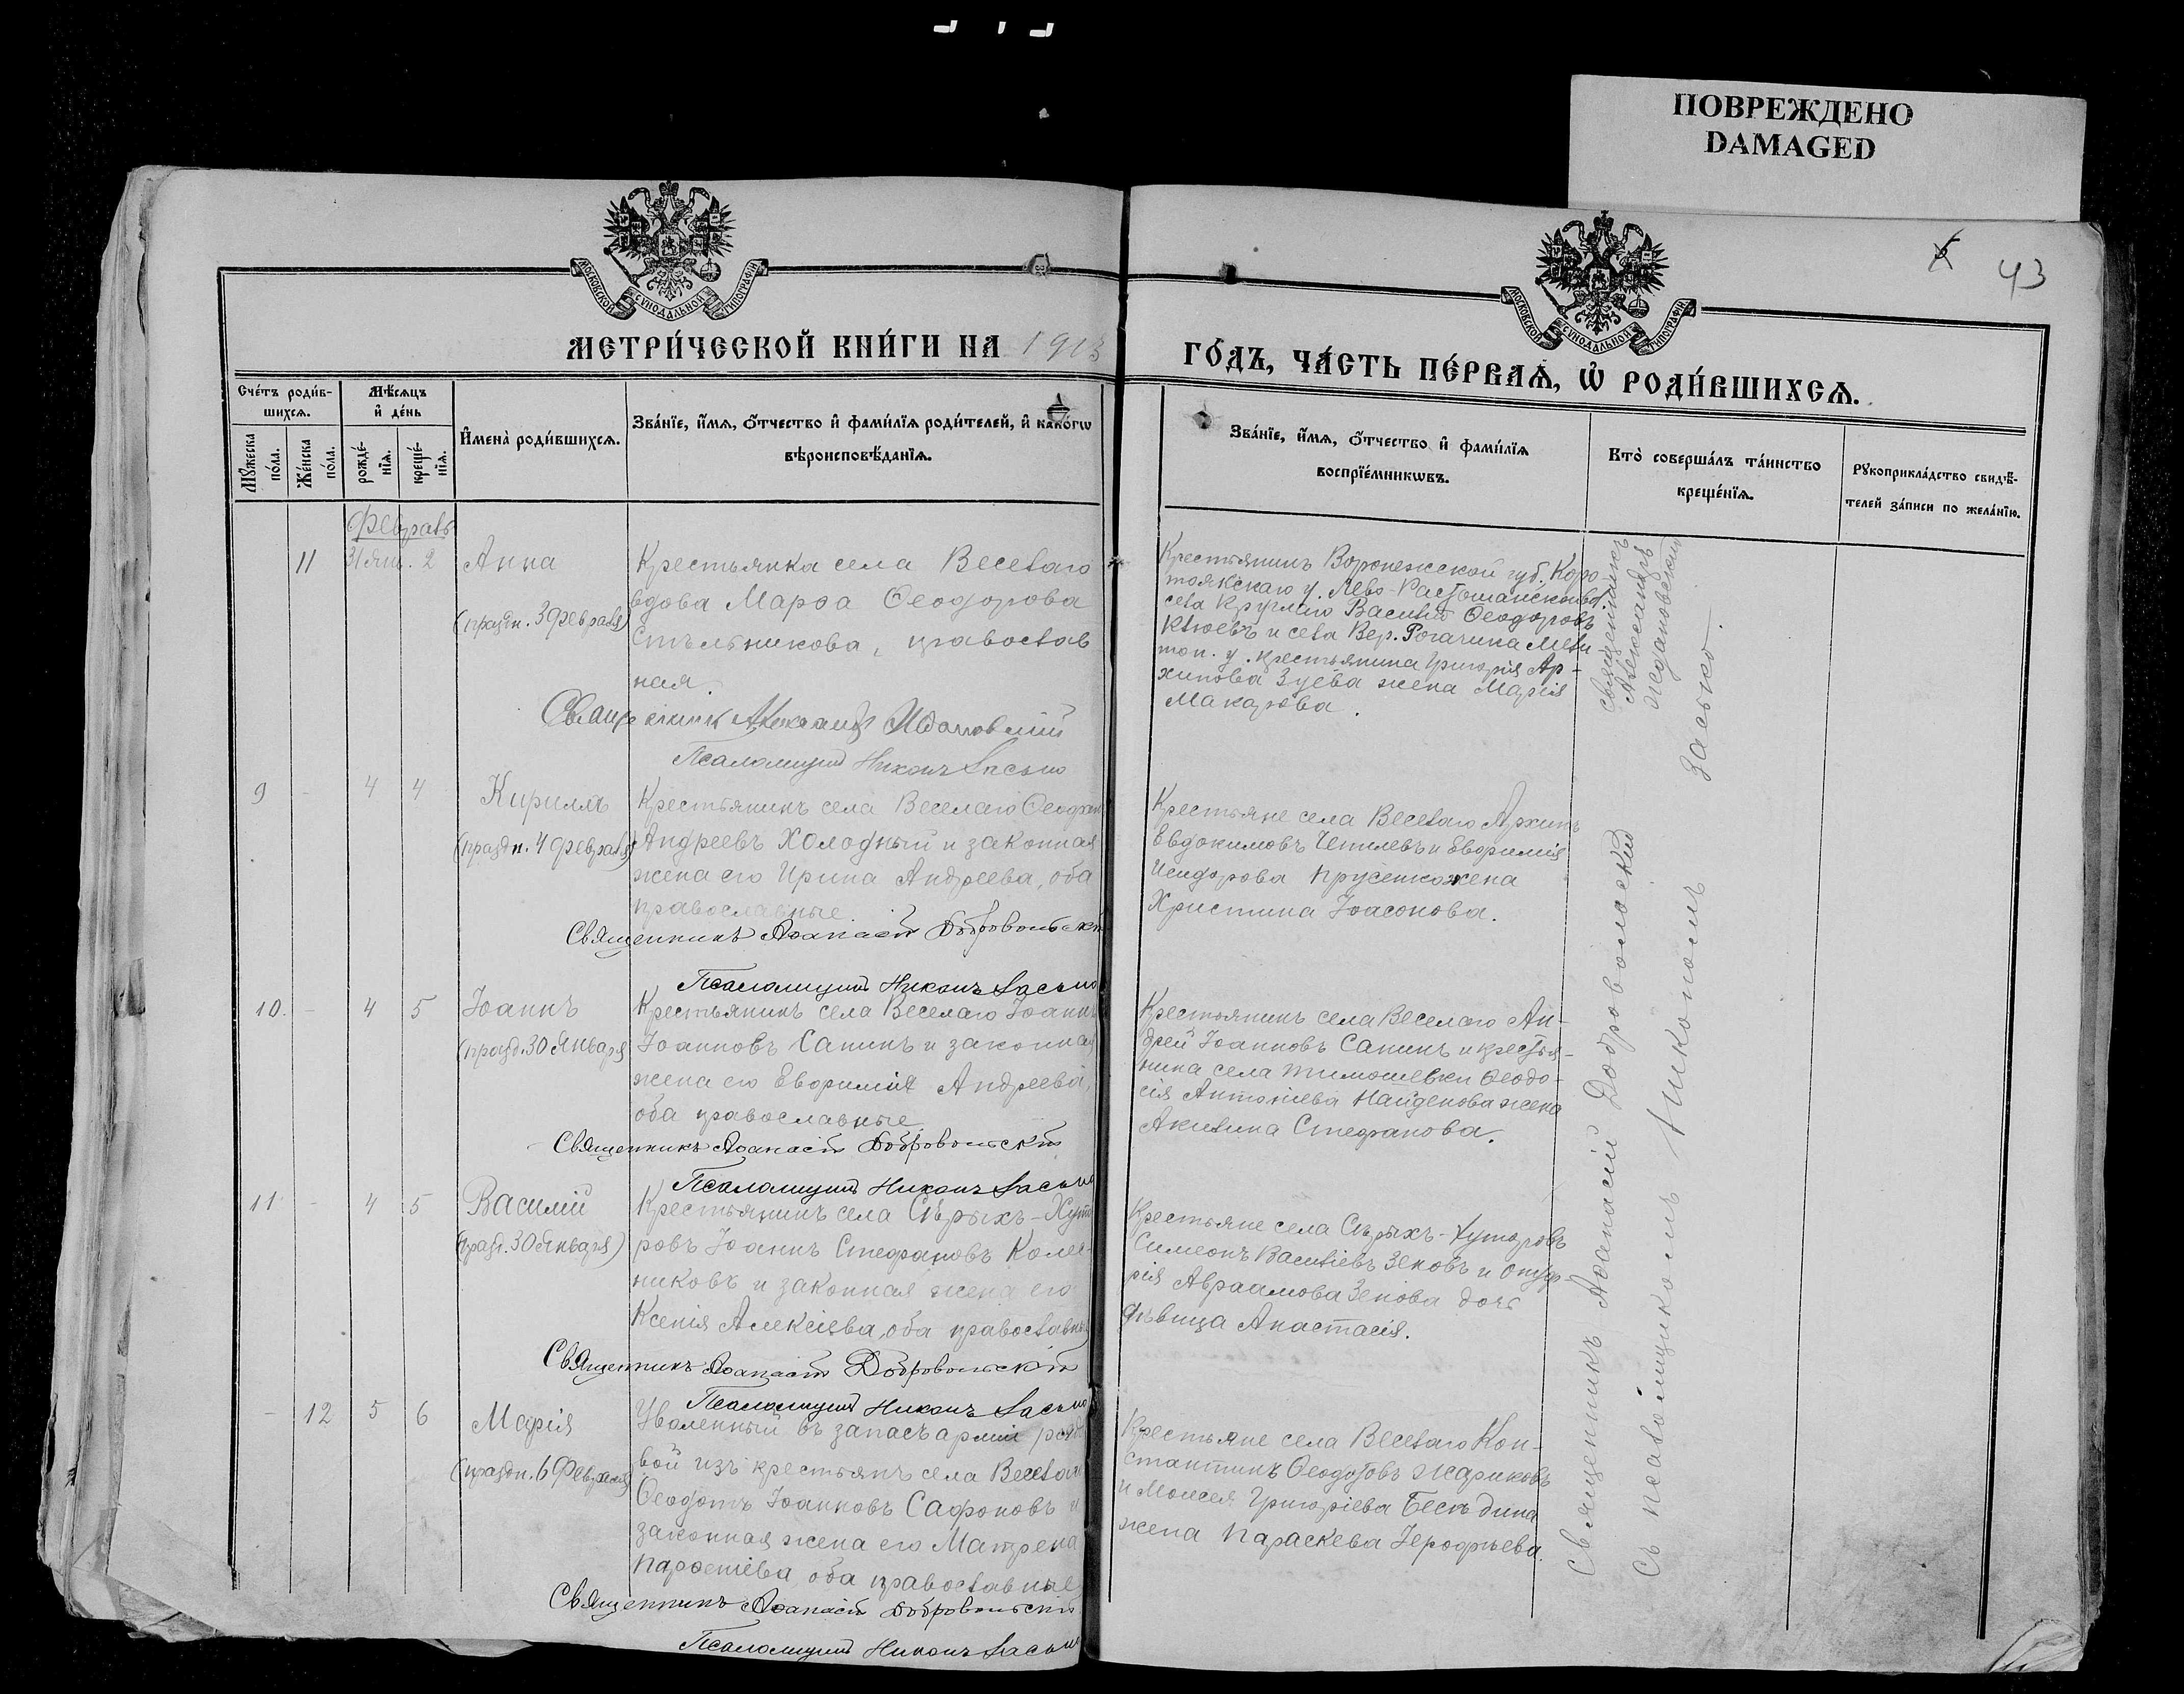 ПОВРЕЖДЕНО
DAMAGED
43
МОСКОВСКОЙ СѴНОДАЛЬНОЙ ТИПОГРАФІИ
МОСКОВСКОЙ СѴНОДАЛЬНОЙ ТИПОГРАФІИ
МЕТРИ́ЧЕСКОЙ КНИ́ГИ НА 1913
ГО́ДЪ, ЧА́СТЬ ПЕ́РВАѦ, Ѡ҆ РОДИ́ВШИХСѦ.
Сче́тъ роди́в-
шихсѧ.
Мꙋ́жеска
по́ла.
Же́нска
по́ла.
Мѣ́сѧцъ
и҆ де́нь
рожде́-
нїѧ.
креще́-
нїѧ.
И҆мена̀ роди́вшихсѧ.
Зва́нїе, и҆́мѧ, ѻ҆́тчество и҆ фами́лїѧ роди́телей, и҆ како́гѡ
вѣроисповѣ́данїѧ.
Зва́нїе, и҆́мѧ, ѻ҆́тчество и҆ фами́лїѧ
воспрїе́мникѡвъ.
Кто̀ соверша́лъ та́инство
креще́нїѧ.
Рꙋкоприкла́дство свидѣ́-
телей за́писи по жела́нїю.
Февраль
11 31 Янв. 2 Анна
(праздн. 3 февраля)
Крестьянка села Веселаго
вдова Марѳа Ѳеодорова
Стѣльникова, православ
ная.
Священникъ Александръ Ждановскій
Псаломщикъ Никонъ Засько
Крестьянинъ Воронежской губ. Коро
тоякскаго у. Лево-Растошанской в.
села Круглаго Василій Ѳеодоровъ
Клюевъ и села Вер. Рогачика Мели-
топ. у. крестьянина Григорія Ар-
хипова Зуева жена Марія
Макарова.
Священникъ
Александръ
Ждановскій
9 - 4 4 Кириллъ
(праздн. 4 февраля)
Крестьянинъ села Веселаго Ѳеодоръ
Андреевъ Холодный и законная
жена его Ирина Андреева, оба
православные.
Священникъ Аѳанасій Добровольскій
Псаломщикъ Никонъ Засько
Крестьяне села Веселаго Архипъ
Евдокимовъ и Евфимія
Исидорова Прусенко жена
Христина Іоасонова.
10. - 4 5 Іоаннъ
(празд. 30 Января)
Крестьянинъ села Веселаго Іоаннъ
Іоанновъ Санинъ и законная
жена его Евфимія Андреева,
оба православные.
Священникъ Аѳанасій Добровольскій
Псаломщикъ Никонъ Засько
Крестьянинъ села Веселаго Ан-
дрей Іоанновъ Санинъ и крестья-
нина села Тимошевки Ѳеодо-
сія Антоніева Найденова жена
Акилина Стефанова.
11 - 4 5 Василій
(празд. 30 Января)
Крестьянинъ села Сѣрыхъ-Хуто
ровъ Іоаннъ Стефановъ Колес-
никовъ и законная жена его
Ксенія Алексіева, оба православные
Священникъ Аѳанасій Добровольскій
Псаломщикъ Никонъ Засько
Крестьяне села Сѣрыхъ-Хуторовъ
Симеонъ Василіевъ Зеновъ и Онуф-
рія Авраамова Зенова дочь
дѣвица Анастасія.
- 12 5 6 Марія
(праздн. 6 Февраля)
Уволенный въ запасъ арміи рядо
вой изъ крестьянъ села Веселаго
Ѳеодотъ Іоанновъ Сафоновъ и
законная жена его Матрена
Парѳеніева, оба православные
Священникъ Аѳанасій Добровольскій
Псаломщикъ Никонъ Засько
Крестьяне села Веселаго Кон-
стантинъ Ѳеодотовъ Жариковъ
и Моисея Григоріева Бесѣдина
жена Параскева Іерофѣева.
Священникъ Аѳанасій Добровольскій
съ псаломщикомъ Никономъ Засько.